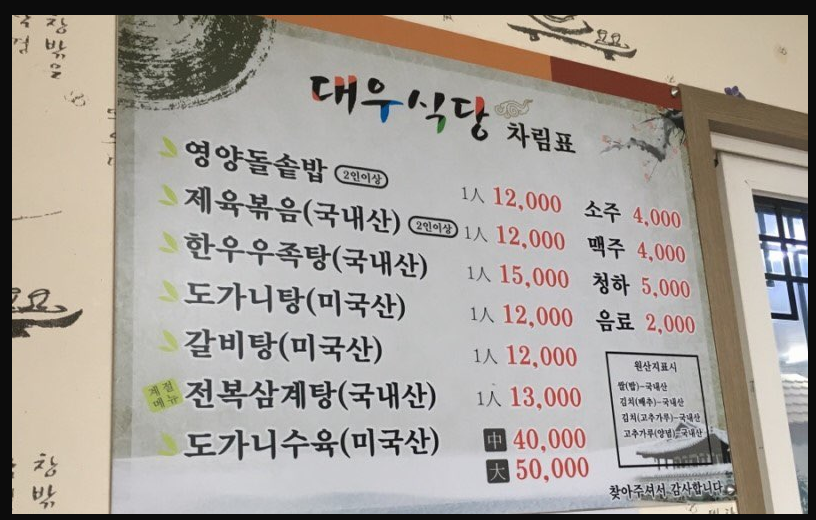 대우식당 차림표
영양돌솥밥 2인이상 1人 12,000
제육볶음(국내산) 2인이상 1人 12,000
한우우족탕(국내산) 1人 15,000
도가니탕(미국산) 1人 12,000
갈비탕(미국산) 1人 12,000
계절메뉴 전복삼계탕(국내산) 1人 13,000
도가니수육(미국산) 中 40,000
大 50,000
소주 4,000
맥주 4,000
청하 5,000
음료 2,000
원산지표시
쌀(밥)-국내산
김치(배추)-국내산
김치(고추가루)-국내산
고추가루(양념)-국내산
찾아주셔서 감사합니다
창
밖